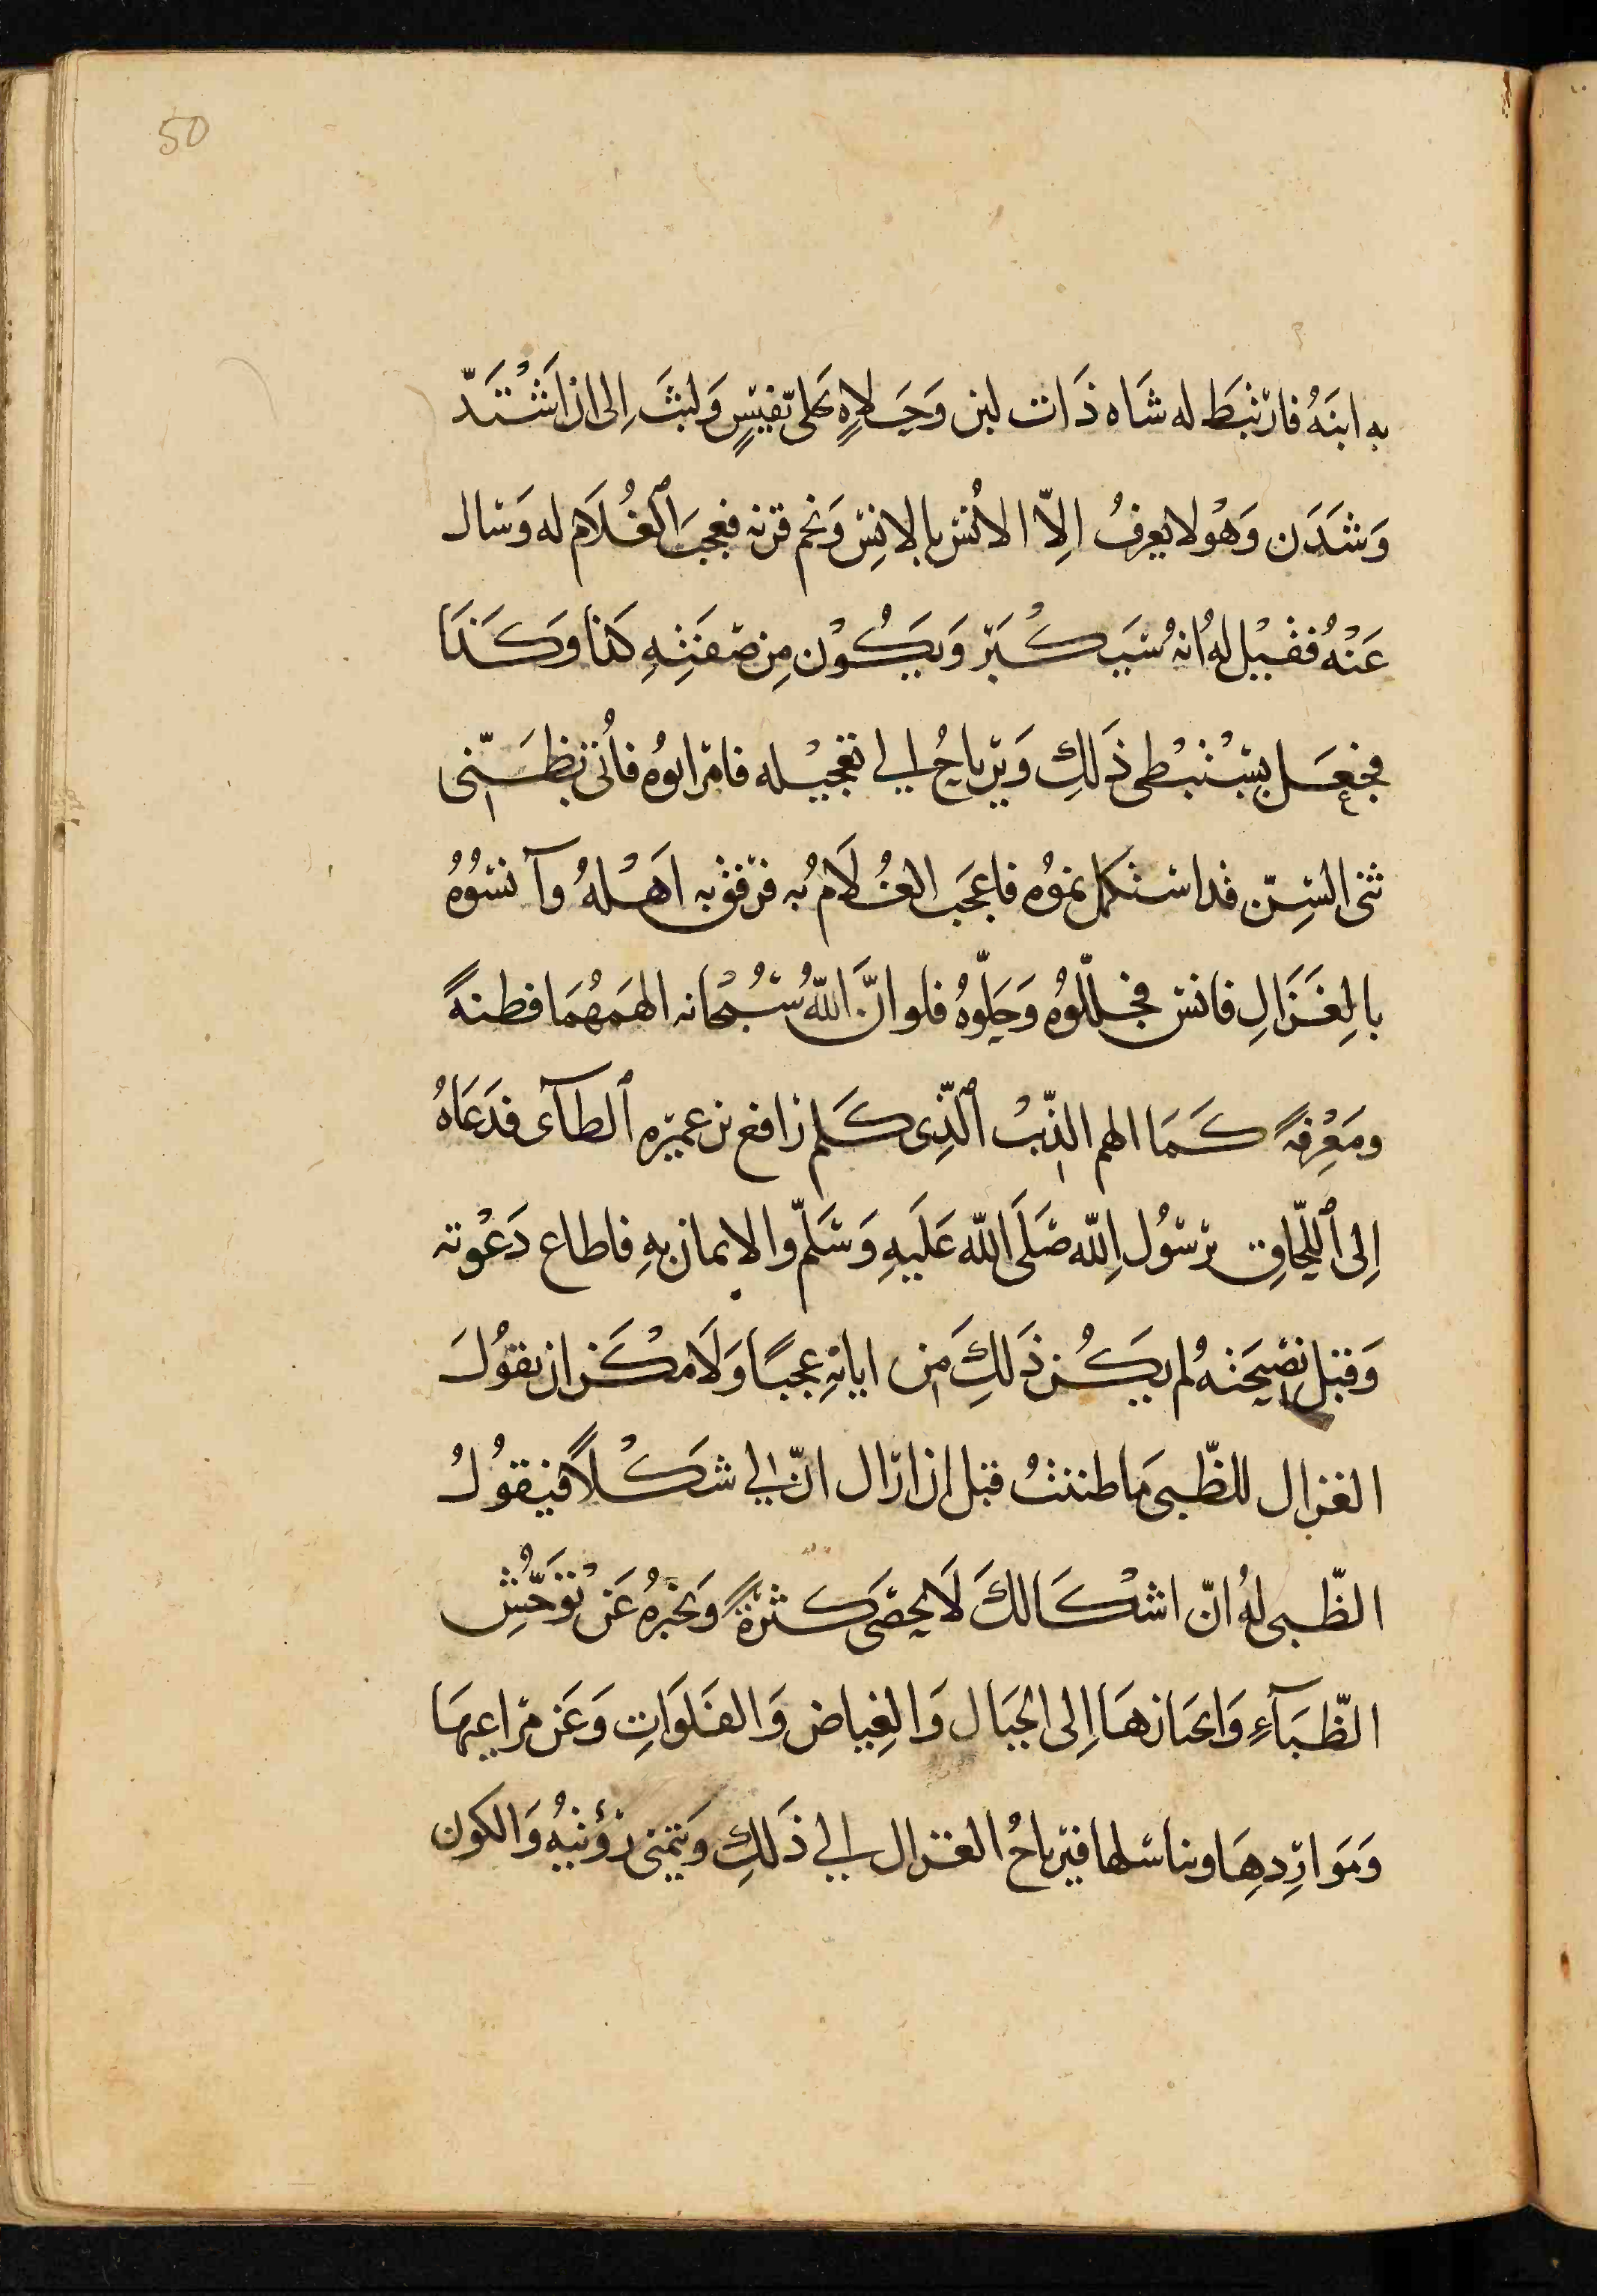 50
به ابنَهُ فارتبَطَ له شَاه ذَات لبن وَحَلاهِ بحَلى نَفِيسٍ وَلبثَ اِلى ان اَشْتَدّ
وَشَدَن وَهُو لا يعرفُ اِلاّ الانُس بالانِس وَنجم قرنه فعجبَ ٱلغُلَام له وَسال
عَنْهُ فقيْل لهُ انهُ سَيَكْبَر وَيَكُوْن مِن صفَتِهِ كذا وَكَذَا
فجعَل يسْتَبْطي ذَلِكِ وَيرتاحُ الي تعجيْله فامر ابوُه فأُتى بظَبى
ثنى السِّن قد استكمل نموُه فاعجَب الغُلَامُ به فرفق به اَهْلهُ وآنسُوُهُ
بالغَزَالِ فانس فجلّلوُه وَحَلّوُهُ فلو انَّ اَللّهُ سُبْحانه الهَمهُمَا فطنةً
ومَعْرِفةً كَمَا الهم الذّيبُ ٱلّذِى كَلم رافع بن عميره ٱلطآى فدَعَاهُ
اِلى ٱللّحَاقِ برسُول اِللّه صَلَى اَللّه عَلَيهِ وَسَلمّ والايمان بهِ فاطاع دَعْوته
وَقبل نصِيحَتهُ لم يَكُن ذَلِكَ مِن اياتهِ عجبًا وَلَامْكَن ان يقوُلَ
الغزال للظّبى مَا ظننتُ قبل ان اراَك انّ لي شَكْلاً فيقوُلُ
الظّبى لهُ انّ اشْكَالكَ لَا يحصَى كثرةً وَيخبرُهُ عَن تَوَحُّشِ
الظّبَآءِ وَانحيَازهَا اِلى الجبَال وَالغِياض وَالفَلوَاتِ وَعَن مراعِيهَا
وَمَوارِدِهَا وتناسُلها فيرتاحُ الغزال الي ذَلكِ وَيتمنى رُؤيتهُ وَالكون